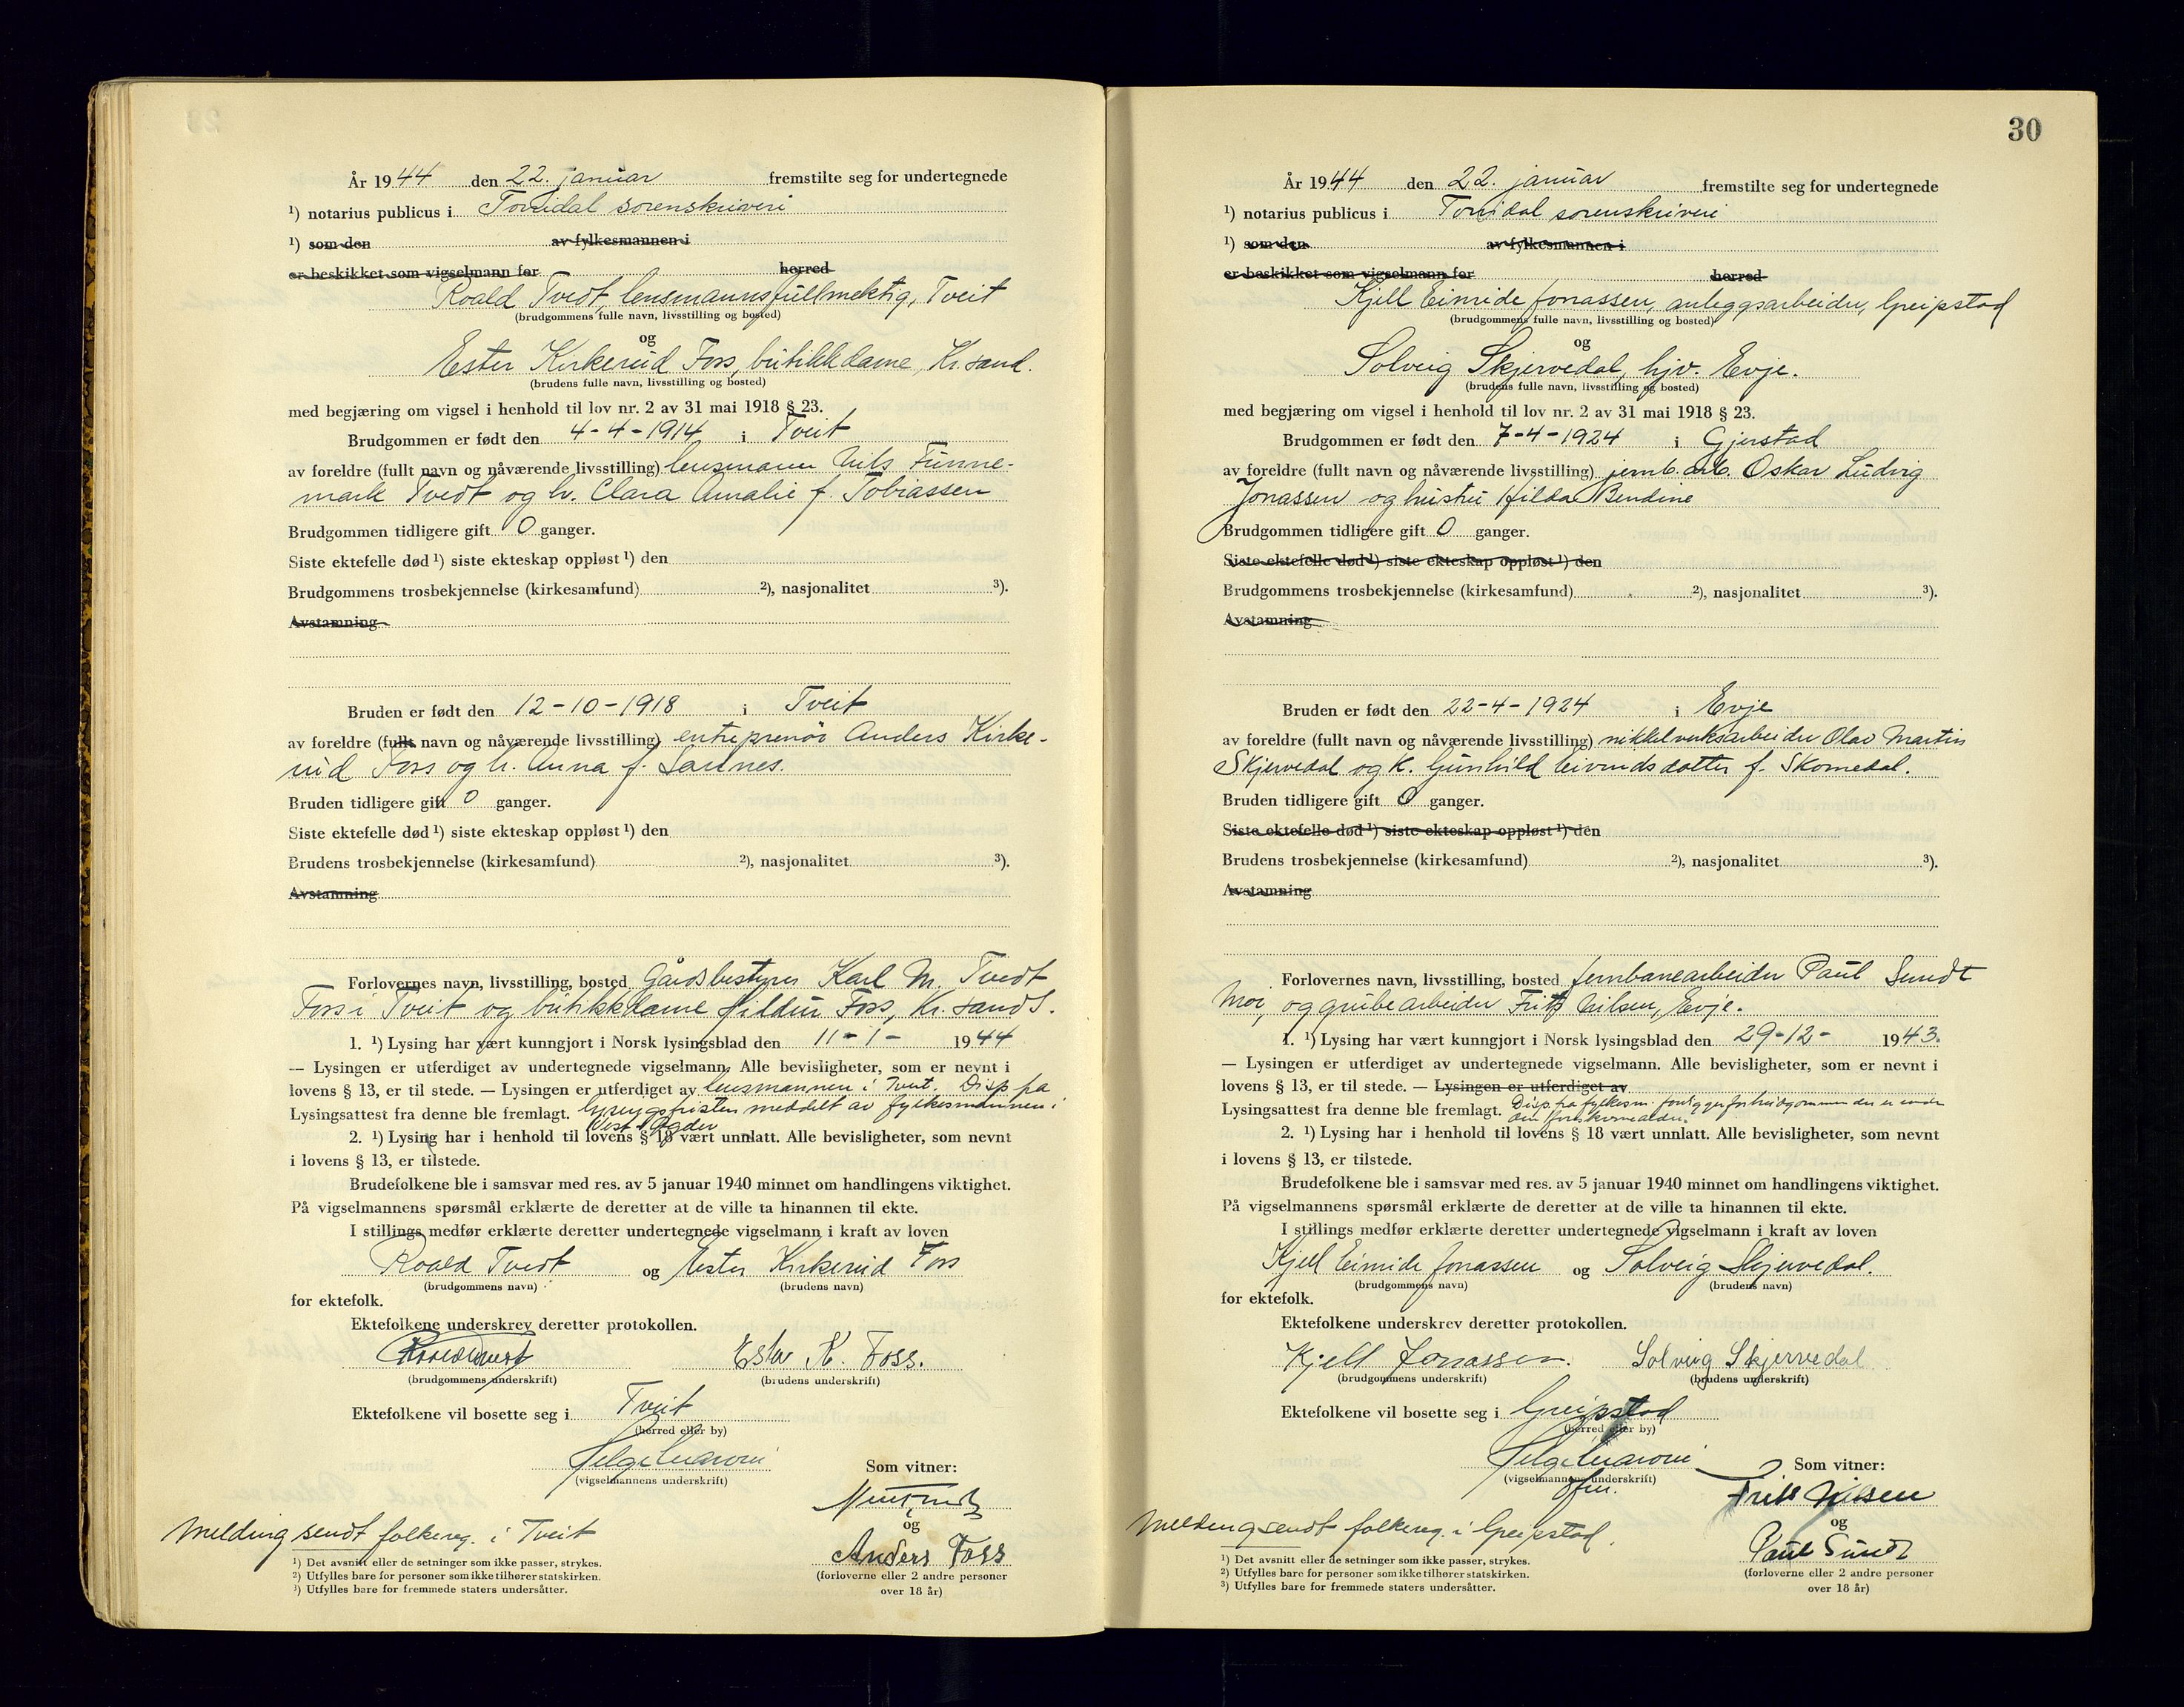 År 1944 den 22. januar fremstilte seg for undertegnede
¹) notarius publicus i Torridal sorenskriveri
¹) som den av fylkesmannen i
er beskikket som vigselmann for herred
Roald Tvedt, lensmannsfullmektig, Tveit
(brudgommens fulle navn, livsstilling og bosted)
og
Ester Kirkerud Foss, butikkdame, Kr.sand.
(brudens fulle navn, livsstilling og bosted)
med begjæring om vigsel i henhold til lov nr. 2 av 31 mai 1918 § 23.
Brudgommen er født den 4-4-1914 i Tveit
av foreldre (fullt navn og nåværende livsstilling) lensmann Nils Tunne-
mark Tvedt og h. Clara Amalie f. Tobiassen
Brudgommen tidligere gift 0 ganger.
Siste ektefelle død ¹) siste ekteskap oppløst ¹) den
Brudgommens trosbekjennelse (kirkesamfund) ²), nasjonalitet ³).
Avstamning
Bruden er født den 12-10-1918 i Tveit
av foreldre (fullt navn og nåværende livsstilling) entreprenør Anders Kirke-
rud Foss og h. Anna f.
Bruden tidligere gift 0 ganger.
Siste ektefelle død ¹) siste ekteskap oppløst ¹) den
Brudens trosbekjennelse (kirkesamfund) ²), nasjonalitet ³).
Avstamning
Forlovernes navn, livsstilling, bosted Gårdsbestyrer Karl M. Tvedt
Foss i Tveit og butikkdame Hildur Foss, Kr.sand S.
1. ¹) Lysing har vært kunngjort i Norsk lysingsblad den 11-1- 1944
— Lysingen er utferdiget av undertegnede vigselmann. Alle bevisligheter, som er nevnt i
lovens § 13, er til stede. — Lysingen er utferdiget av lensmannen i Tveit. Disp. fra
Lysingsattest fra denne ble fremlagt. lysingsfristen meddelt av fylkesmannen i
Vest-Agder
2. ¹) Lysing har i henhold til lovens § 18 vært unnlatt. Alle bevisligheter, som nevnt
i lovens § 13, er tilstede.
Brudefolkene ble i samsvar med res. av 5 januar 1940 minnet om handlingens viktighet.
På vigselmannens spørsmål erklærte de deretter at de ville ta hinannen til ekte.
I stillings medfør erklærte deretter undertegnede vigselmann i kraft av loven
Roald Tvedt og Ester Kirkerud Foss
(brudgommens navn) (brudens navn)
for ektefolk.
Ektefolkene underskrev deretter protokollen.
Roald Tvedt Ester K. Foss.
(brudgommens underskrift) (brudens underskrift)
Ektefolkene vil bosette seg i Tveit
(herred eller by)
(vigselmannens underskrift)
Som vitner:
og
Anders Foss
(forloverne eller 2 andre personer
over 18 år)
Melding sendt folkereg. i Tveit
¹) Det avsnitt eller de setninger som ikke passer, strykes.
²) Utfylles bare for personer som ikke tilhører statskirken.
³) Utfylles bare for fremmede staters undersåtter.
30
År 1944 den 22. januar fremstilte seg for undertegnede
¹) notarius publicus i Torridal sorenskriveri
¹) som den av fylkesmannen i
er beskikket som vigselmann for herred
Kjell Eimide Jonassen, anleggsarbeider, Greipstad
(brudgommens fulle navn, livsstilling og bosted)
og
Solveig Skjervedal, hjv. Evje.
(brudens fulle navn, livsstilling og bosted)
med begjæring om vigsel i henhold til lov nr. 2 av 31 mai 1918 § 23.
Brudgommen er født den 7-4-1924 i Gjerstad
av foreldre (fullt navn og nåværende livsstilling) jernb.arb. Oskar Ludvig
Jonassen og hustru Hilda Bendine
Brudgommen tidligere gift 0 ganger.
Siste ektefelle død ¹) siste ekteskap oppløst ¹) den
Brudgommens trosbekjennelse (kirkesamfund) ²), nasjonalitet ³).
Avstamning
Bruden er født den 22-4-1924 i Evje
av foreldre (fullt navn og nåværende livsstilling) nikkelverksarbeider Olav Martin
Skjervedal og k. Gunhild Eivindsdotter f. Skomedal.
Bruden tidligere gift 0 ganger.
Siste ektefelle død ¹) siste ekteskap oppløst ¹) den
Brudens trosbekjennelse (kirkesamfund) ²), nasjonalitet ³).
Avstamning
Forlovernes navn, livsstilling, bosted jernbanearbeider Paul Sundt
Moi, og grubearbeider Fritz Nilsen, Evje.
1. ¹) Lysing har vært kunngjort i Norsk lysingsblad den 29-12- 1943.
— Lysingen er utferdiget av undertegnede vigselmann. Alle bevisligheter, som er nevnt i
lovens § 13, er til stede. — Lysingen er utferdiget av
Lysingsattest fra denne ble fremlagt. Disp. fra fylkesm. foreligger for brudgommen der er under
2. ¹) Lysing har i henhold til lovens § 18 vært unnlatt. Alle bevisligheter, som nevnt
i lovens § 13, er tilstede.
Brudefolkene ble i samsvar med res. av 5 januar 1940 minnet om handlingens viktighet.
På vigselmannens spørsmål erklærte de deretter at de ville ta hinannen til ekte.
I stillings medfør erklærte deretter undertegnede vigselmann i kraft av loven
Kjell Eimide Jonassen og Solveig Skjervedal.
(brudgommens navn) (brudens navn)
for ektefolk.
Ektefolkene underskrev deretter protokollen.
Kjell Jonassen. Solveig Skjervedal
(brudgommens underskrift) (brudens underskrift)
Ektefolkene vil bosette seg i Greipstad
(herred eller by)
(vigselmannens underskrift)
Som vitner:
Fritz Nilsen
og
Paul Sundt
(forloverne eller 2 andre personer
over 18 år)
Melding sendt folkereg. i Greipstad.
¹) Det avsnitt eller de setninger som ikke passer, strykes.
²) Utfylles bare for personer som ikke tilhører statskirken.
³) Utfylles bare for fremmede staters undersåtter.